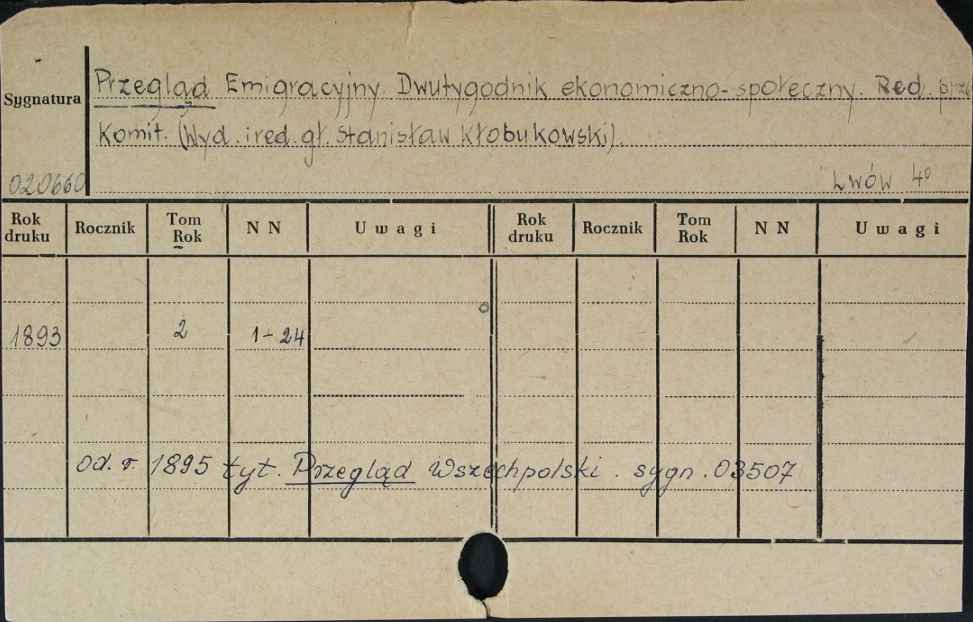 Sygnatura
Przegląd Emigracyjny. Dwutygodnik ekonomiczno-społeczny. Red. prze
Komit. (Wyd. i red. gł. Stanisław Kłobukowski).
020660 Lwów 4º
Rok druku Rocznik Tom Rok N N Uwagi Rok druku Rocznik Tom Rok N N Uwagi
1893 2 1-24
od. r. 1895 tyt. Przegląd Wszechpolski. sygn. 03507